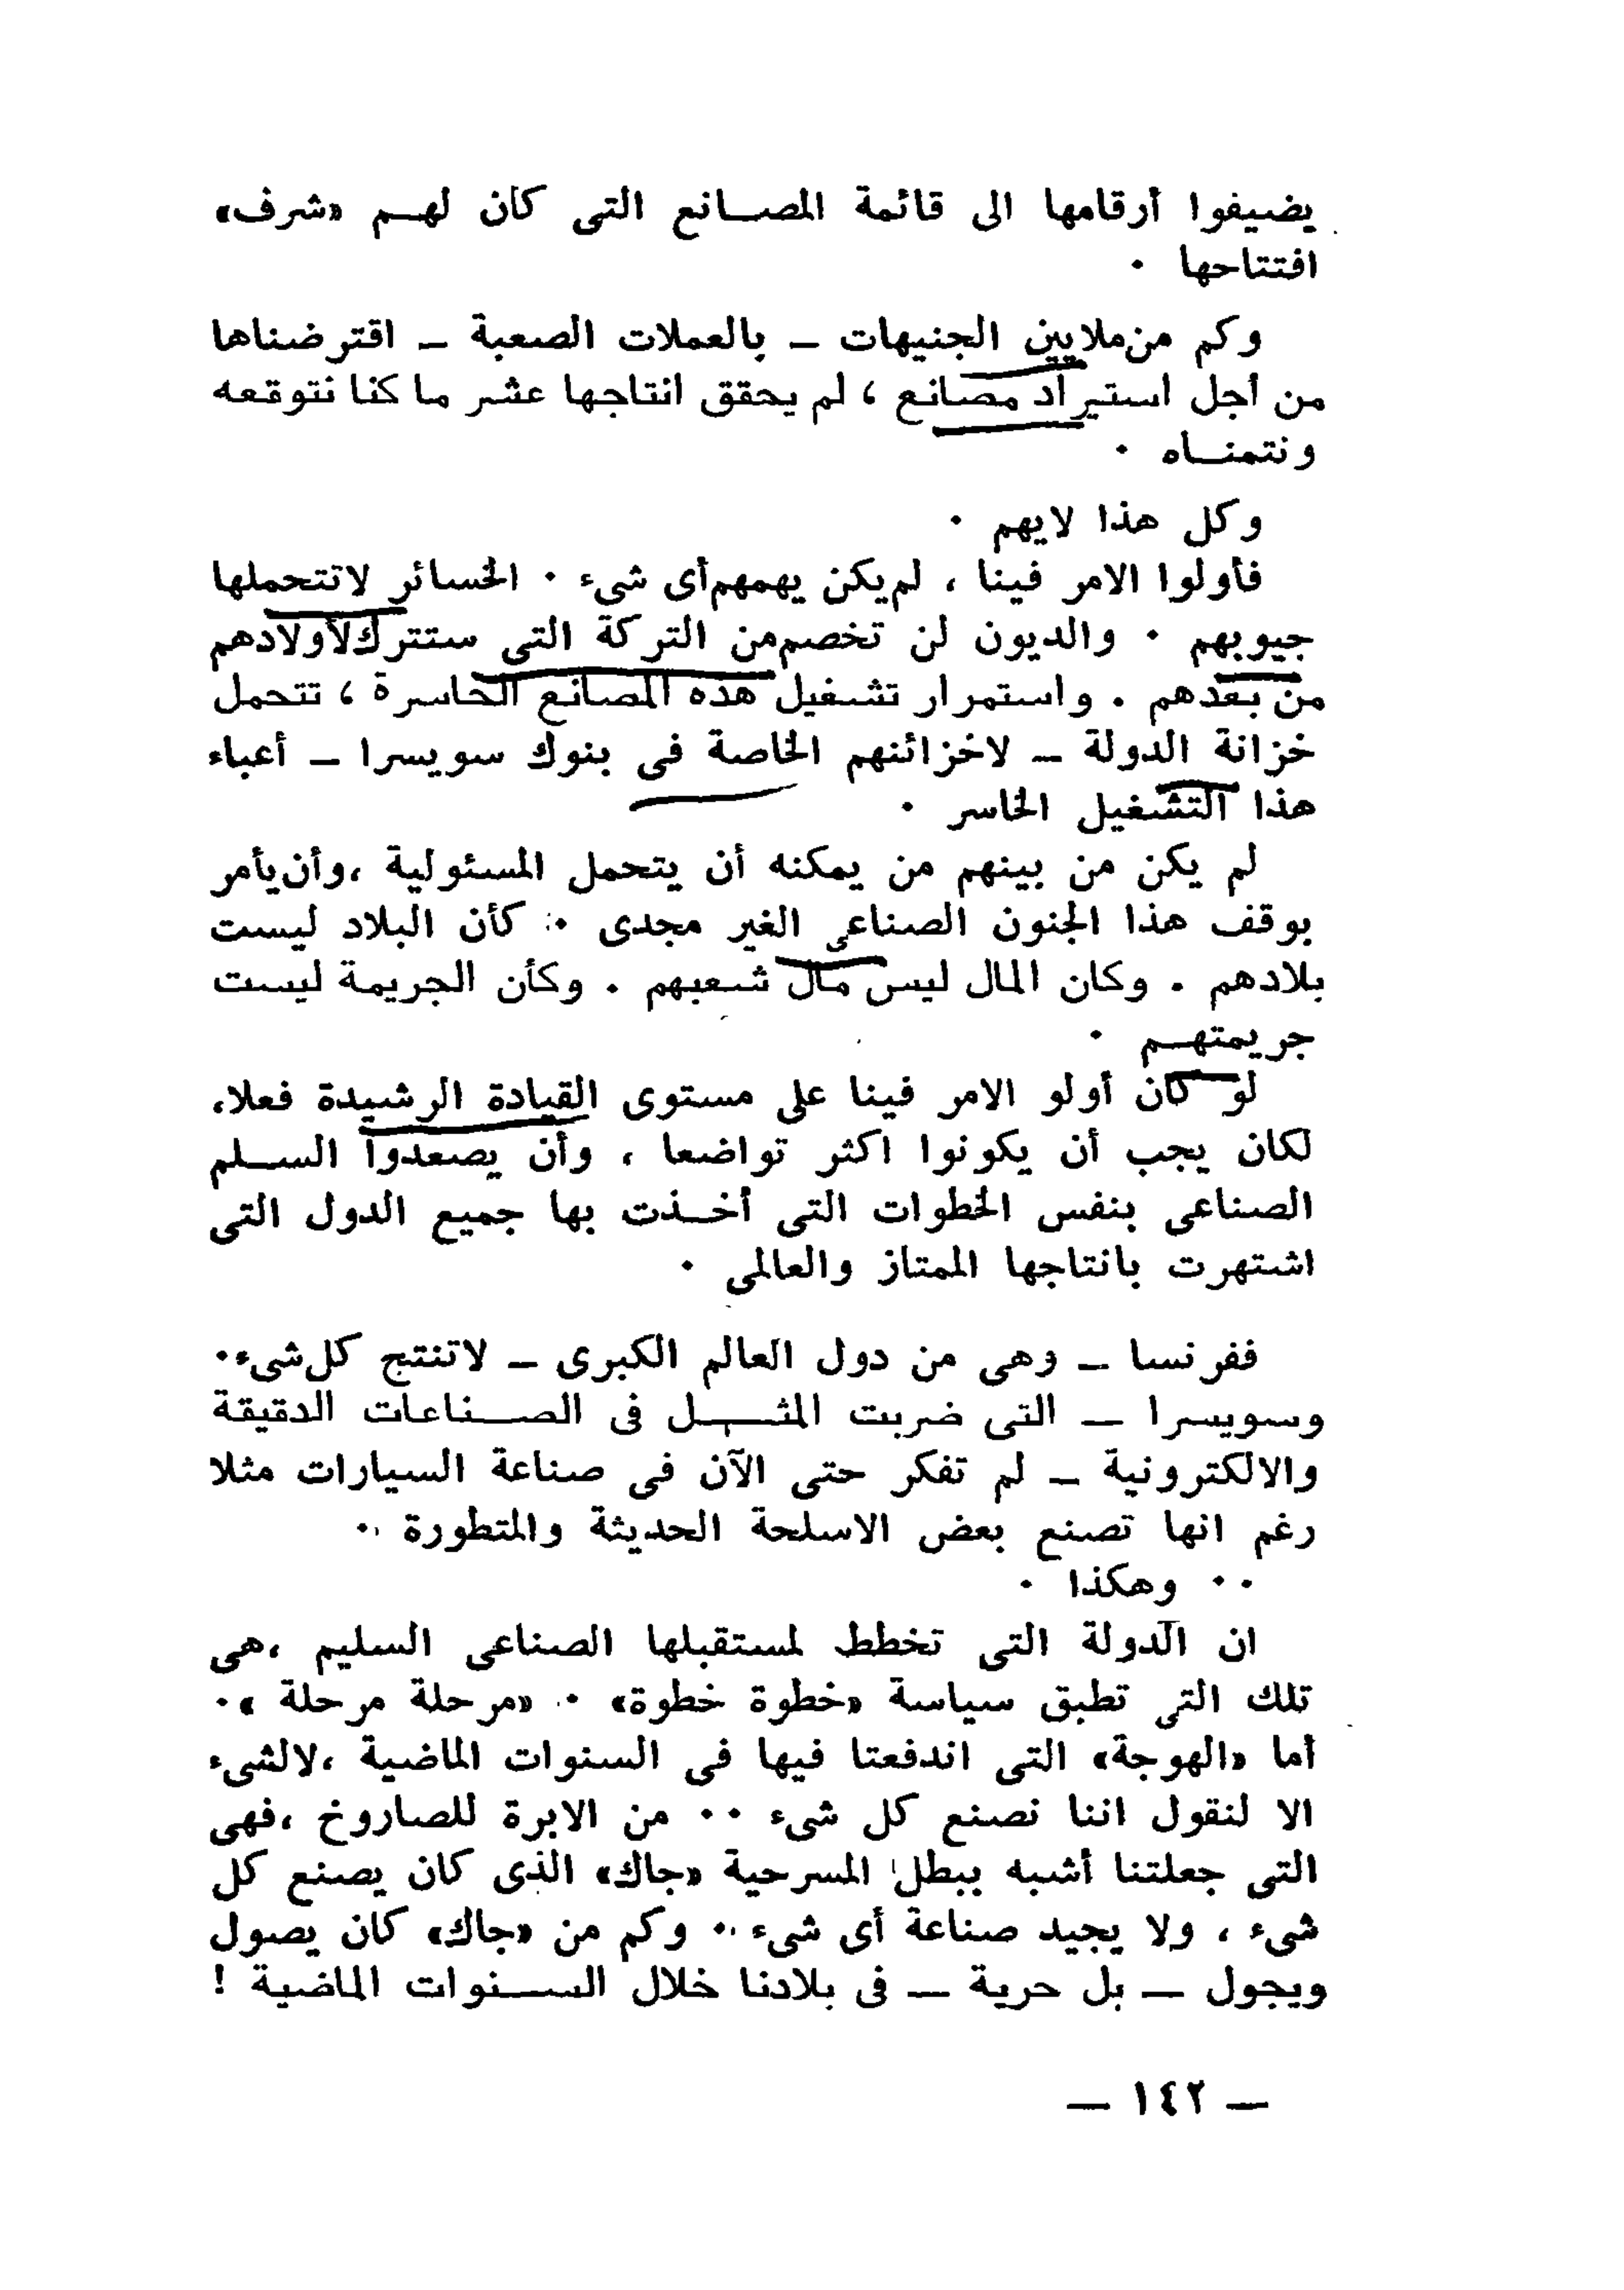 يضيفوا أرقامها الى قائمة المصانع التى كان لهم «شرف»
افتتاحها ٠
وكم من ملايين الجنيهات — بالعملات الصعبة — اقترضناها
من أجل استيراد مصانع ، لم يحقق انتاجها عشر ما كنا نتوقعه
ونتمناه ٠
وكل هذا لايهم ٠
فأولوا الامر فينا ، لم يكن يهمهم أى شىء ٠ الخسائر لاتتحملها
جيوبهم ٠ والديون لن تخصم من التركة التى ستترك لأولادهم
من بعدهم . واستمرار تشغيل هذه المصانع الخاسرة ، تتحمل
خزانة الدولة — لاخزائنهم الخاصة فى بنوك سويسرا — أعباء
هذا التشغيل الخاسر ٠
لم يكن من بينهم من يمكنه أن يتحمل المسئولية ،وأن يأمر
بوقف هذا الجنون الصناعى الغير مجدى ٠ كأن البلاد ليست
بلادهم . وكان المال ليس مال شعبهم . وكأن الجريمة ليست
جريمتهم ٠
لو كان أولو الامر فينا على مستوى القيادة الرشيدة فعلا،
لكان يجب أن يكونوا اكثر تواضعا ، وأن يصعدوا السلم
الصناعى بنفس الخطوات التى أخذت بها جميع الدول التى
اشتهرت بانتاجها الممتاز والعالمى ٠
ففرنسا — وهى من دول العالم الكبرى — لاتنتج كل شىء٠
وسويسرا — التى ضربت المثل فى الصناعات الدقيقة
والالكترونية — لم تفكر حتى الآن فى صناعة السيارات مثلا
رغم انها تصنع بعض الاسلحة الحديثة والمتطورة ٠
٠٠ وهكذا ٠
ان الدولة التى تخطط لمستقبلها الصناعى السليم ،هى
تلك التى تطبق سياسة «خطوة خطوة» ٠ «مرحلة مرحلة »٠
أما «الهوجة» التى اندفعتا فيها فى السنوات الماضية ،لالشىء
الا لنقول اننا نصنع كل شىء ٠٠ من الابرة للصاروخ ،فهى
التى جعلتنا أشبه ببطل المسرحية «جاك» الذى كان يصنع كل
شىء ، ولا يجيد صناعة أى شىء ٠ وكم من «جاك» كان يصول
ويجول — بل حرية — فى بلادنا خلال السنوات الماضية !
— ١٤٢ —